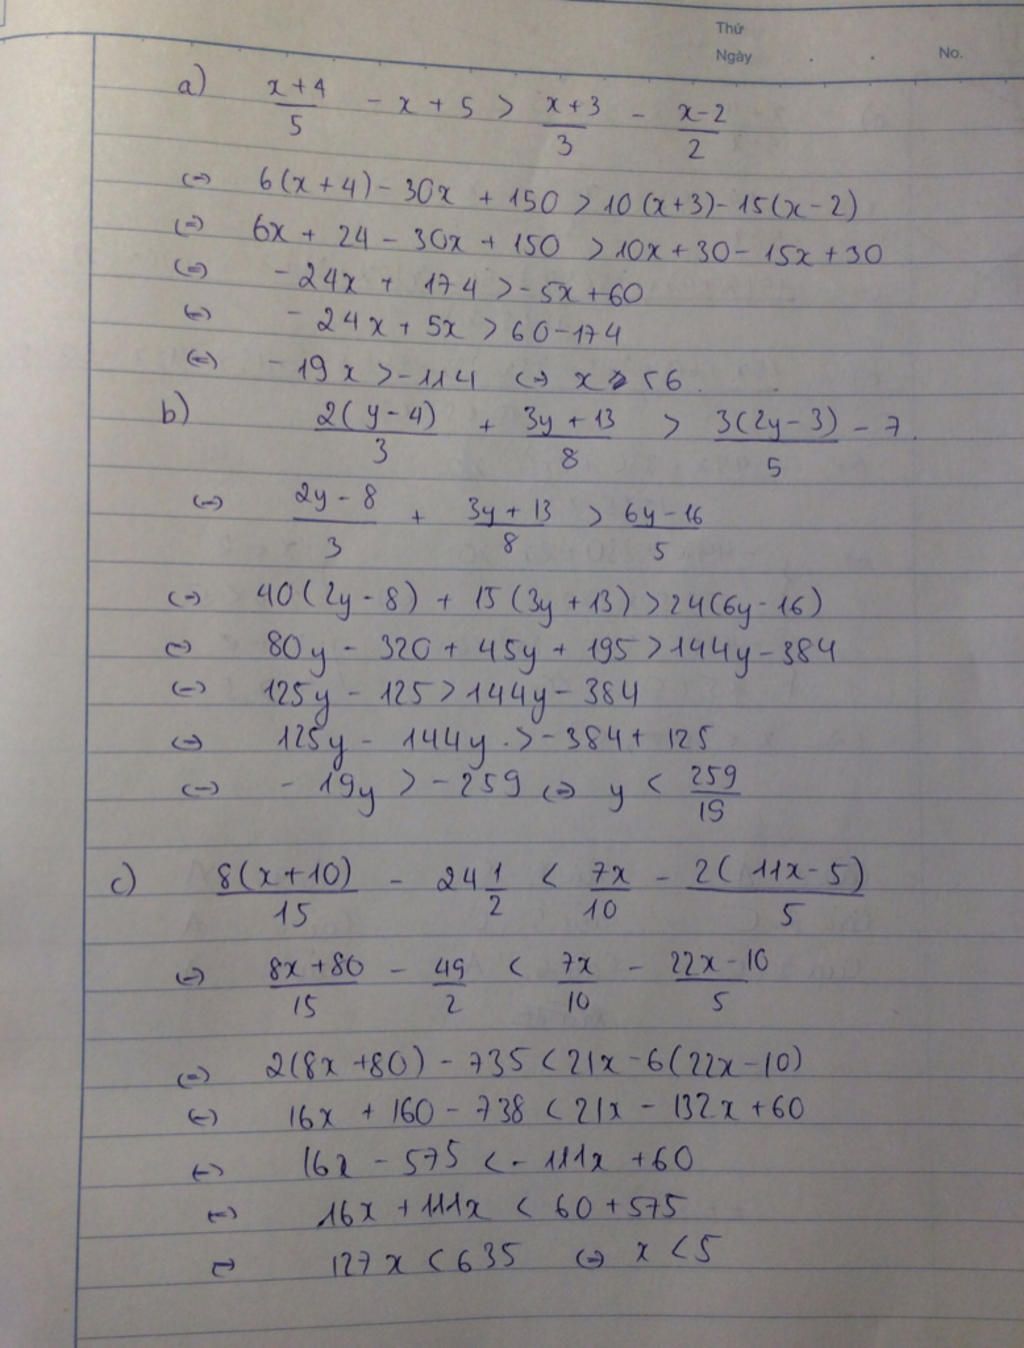 Thứ
Ngày . . No.
a) (x+4)/5 - x + 5 > (x+3)/3 - (x-2)/2
(=) 6(x+4) - 30x + 150 > 10(x+3) - 15(x-2)
(=) 6x + 24 - 30x + 150 > 10x + 30 - 15x + 30
(=) -24x + 174 > -5x + 60
(=) -24x + 5x > 60 - 174
(=) -19x > -114 (=) x < 6.
b) 2(y-4)/3 + (3y+13)/8 > 3(2y-3)/5 - 7.
(=) (2y-8)/3 + (3y+13)/8 > (6y-16)/5
(=) 40(2y-8) + 15(3y+13) > 24(6y-16)
(=) 80y - 320 + 45y + 195 > 144y - 384
(=) 125y - 125 > 144y - 384
(=) 125y - 144y > -384 + 125
(=) -19y > -259 (=) y < 259/19
c) 8(x+10)/15 - 24 1/2 < 7x/10 - 2(11x-5)/5
(=) (8x+80)/15 - 49/2 < 7x/10 - (22x-10)/5
(=) 2(8x+80) - 735 < 21x - 6(22x-10)
(=) 16x + 160 - 738 < 21x - 132x + 60
(=) 16x - 575 < -111x + 60
(=) 16x + 111x < 60 + 575
(=) 127x < 635 (=) x < 5